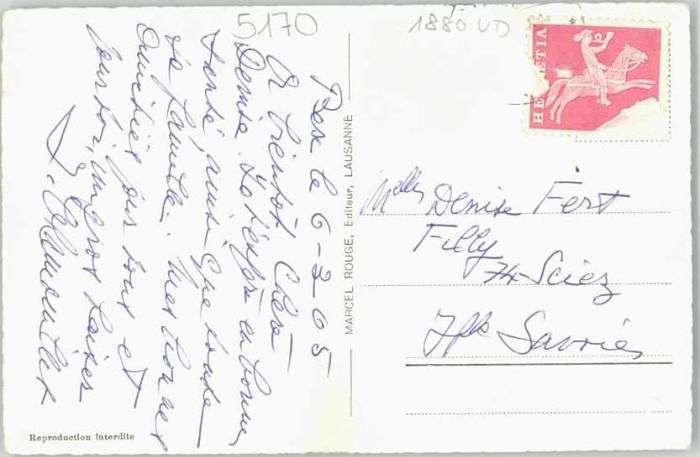 5170
1880 VD
HELVETIA
Bex le 6-2 65
A bientôt Chère
Denise. Je t'espère en bonne
santé, ainsi que toute
ta famille.
Amitiés pour tous et
pour toi, un gros baiser
MARCEL ROUGE, Editeur, LAUSANNE
Mlle Denise Fert
Filly
74-Sciez
Hte Savoie
Reproduction interdite